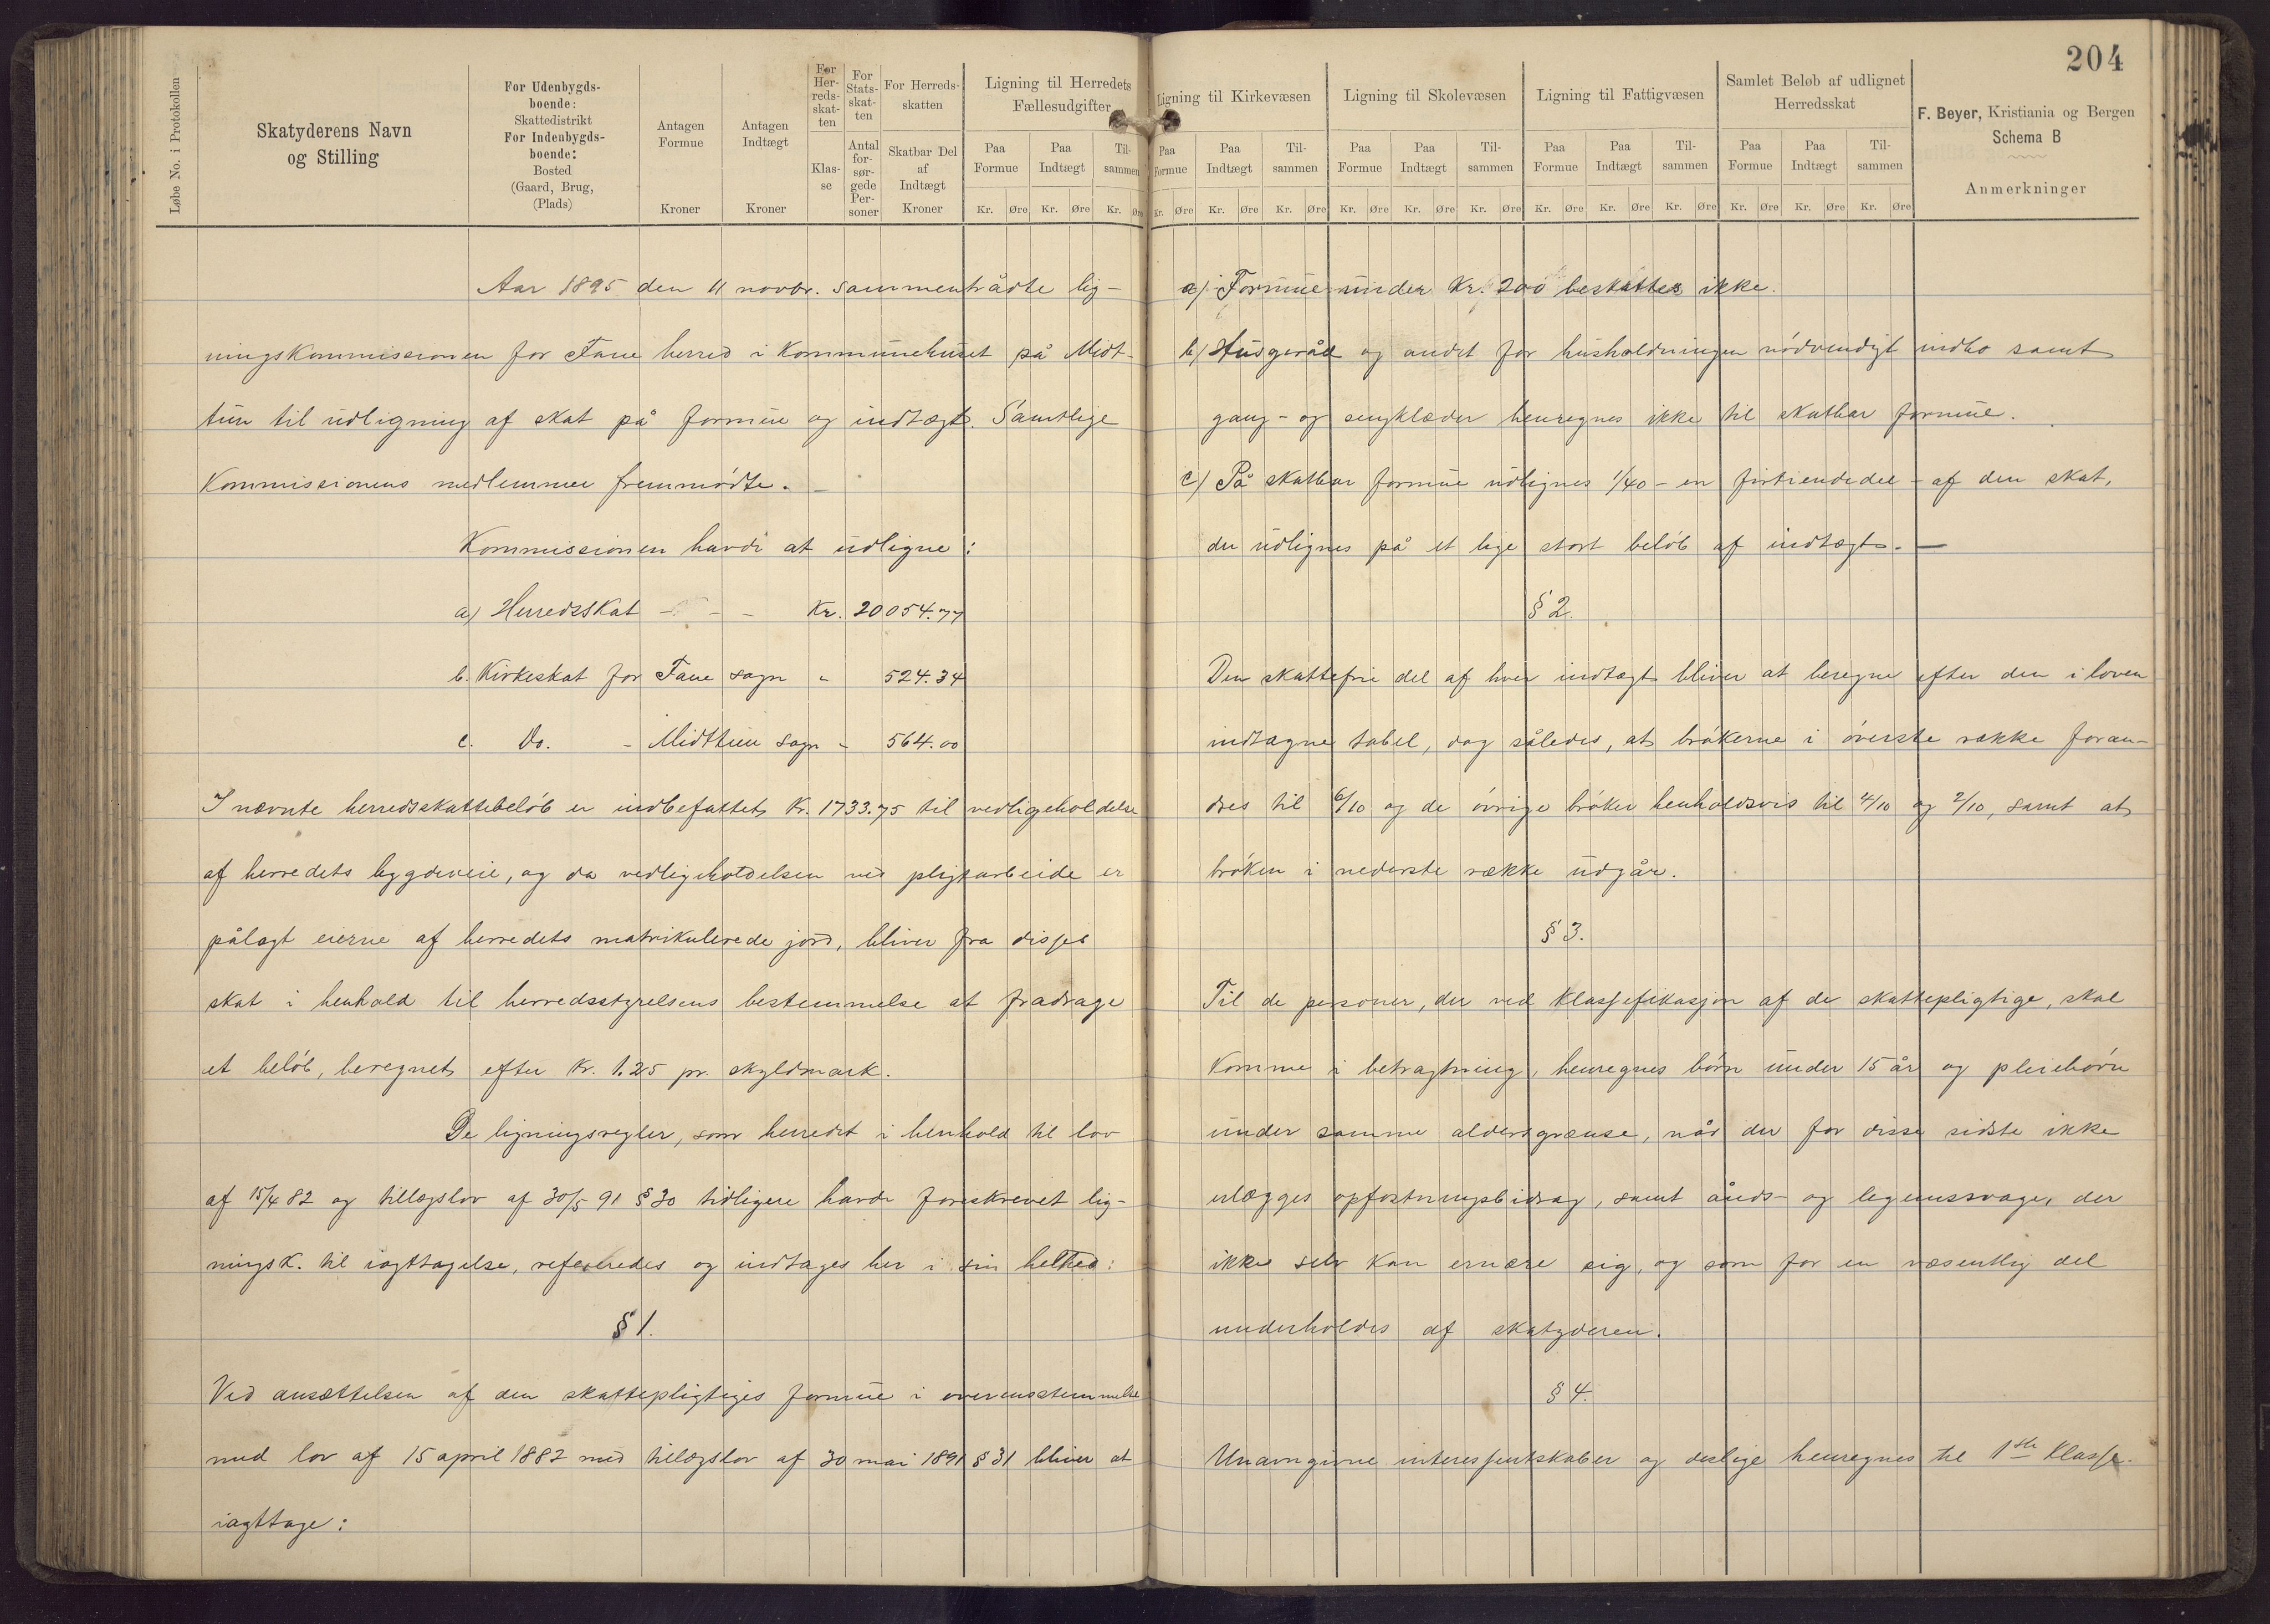 204
Løbe No. i Protokollen
Skatyderens Navn
og Stilling
For Udenbygds-
boende:
Skattedistrikt
For Indenbygds-
boende:
Bosted
(Gaard, Brug,
(Plads)
Antagen
Formue
Kroner
Antagen
Indtægt
Kroner
For
Her-
reds-
skat-
ten
Klas-
se
For
Stats-
skat-
ten
Antal
for-
sør-
gede
Per-
soner
For Herreds-
skatten
Skatbar Del
af
Indtægt
Kroner
Ligning til Herredets
Fællesudgifter
Paa Formue
Paa Indtægt
Til- sammen
Kr. Øre Kr. Øre Kr. Øre
Ligning til Kirkevæsen
Paa Formue
Paa Indtægt
Til- sammen
Kr. Øre Kr. Øre Kr. Øre
Ligning til Skolevæsen
Paa Formue
Paa Indtægt
Til- sammen
Kr. Øre Kr. Øre Kr. Øre
Ligning til Fattigvæsen
Paa Formue
Paa Indtægt
Til- sammen
Kr. Øre Kr. Øre Kr. Øre
Samlet Beløb af udlignet
Herredsskat
Paa Formue
Paa Indtægt
Til- sammen
Kr. Øre Kr. Øre Kr. Øre
F. Beyer, Kristiania og Bergen
Schema B
Anmerkninger
Aar 1895 den 11 novbr. sammentrådte lig-
ningskommissionen for Fane herred i kommunehuset på Midt-
tun til udligning af skat på formue og indtægt. Samtlige
Kommissionens medlemmer fremmødte. –
Kommissionen havde at udligne:
a) Herredsskat - - - Kr. 20054.77
b. Kirkeskat for Fane sogn " 524.34
c. Do. - Midttun sogn - 564.00
I nævnte herredsskattebeløb er indbefattet Kr. 1733.75 til vedligeholdelse
af herredets bygdeveie, og da vedligeholdelsen ved pligtarbeide er
pålagt eierne af herredets matrikulerede jord, bliver fra disses
skat i henhold til herredsstyrelsens bestemmelse at fradrage
et beløb, beregnet efter Kr. 1.25 pr. skyldmark.
De ligningsregler, som herredet i henhold til lov
af 15/4 82 og tillægslov af 30/5 91 § 30 tidligere havde foreskrevet lig-
ningsk. til iagttagelse, refereredes og indtages her i sin helhed:
§ 1.
Ved ansættelsen af den skattepligtiges formue i overensstemmelse
med lov af 15 april 1882 med tillægslov af 30 mai 1891 § 31 bliver at
iagttage:
a) Formue under Kr. 200 beskattes ikke.
b) Husgeråd og andet for husholdningen nødvendigt indbo samt
gang- og sengklæder henregnes ikke til skatbar formue.
c) På skatbar formue udlignes 1/40 - en førtiendedel - af den skat,
der udlignes på et lige stort beløb af indtægt. –
§ 2.
Den skattefrie del af hver indtægt bliver at beregne efter den i loven
indtagne tabel, dog således, at brøkerne i øverste række foran-
dres til 6/10 og de øvrige brøker henholdsvis til 4/10 og 2/10, samt at
brøken i nederste række udgår.
§ 3.
Til de personer, der ved klassefikasjon af de skattepligtige, skal
komme i betragtning, henregnes børn under 15 år og pleiebørn
under samme aldersgrænse, når der for disse sidste ikke
erlægges opfostringsbidrag, samt ånds- og legemssvage, der
ikke selv kan ernære sig, og som for en væsentlig del
underholdes af skatyderen.
§ 4.
Unavngivne interessentskaber og deslige henregnes til 1ste klasse.